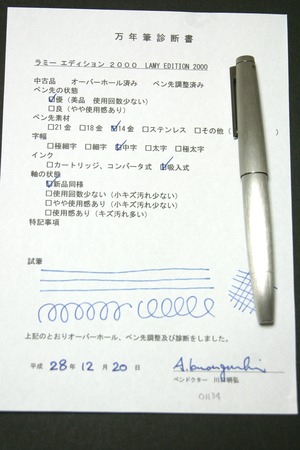 万年筆診断書
ラミー エディション 2000 LAMY EDITION 2000
中古品 オーバーホール済み ペン先調整済み
ペン先の状態
☑優(美品 使用回数少ない)
□良(やや使用感あり)
ペン先素材
□21金 □18金 ☑14金 □ステンレス □その他(
字幅
□極細字 □細字 ☑中字 □太字 □極太字
インク
□カートリッジ、コンバータ式 ☑吸入式
軸の状態
☑新品同様
□使用回数少ない(小キズ汚れ少ない)
□やや使用感あり(小キズ汚れ少ない)
□使用感あり(キズ汚れ多い)
特記事項
試筆
上記のとおりオーバーホール、ペン先調整及び診断をしました。
平成 28年 12月 20日
ペンドクター 川口明弘